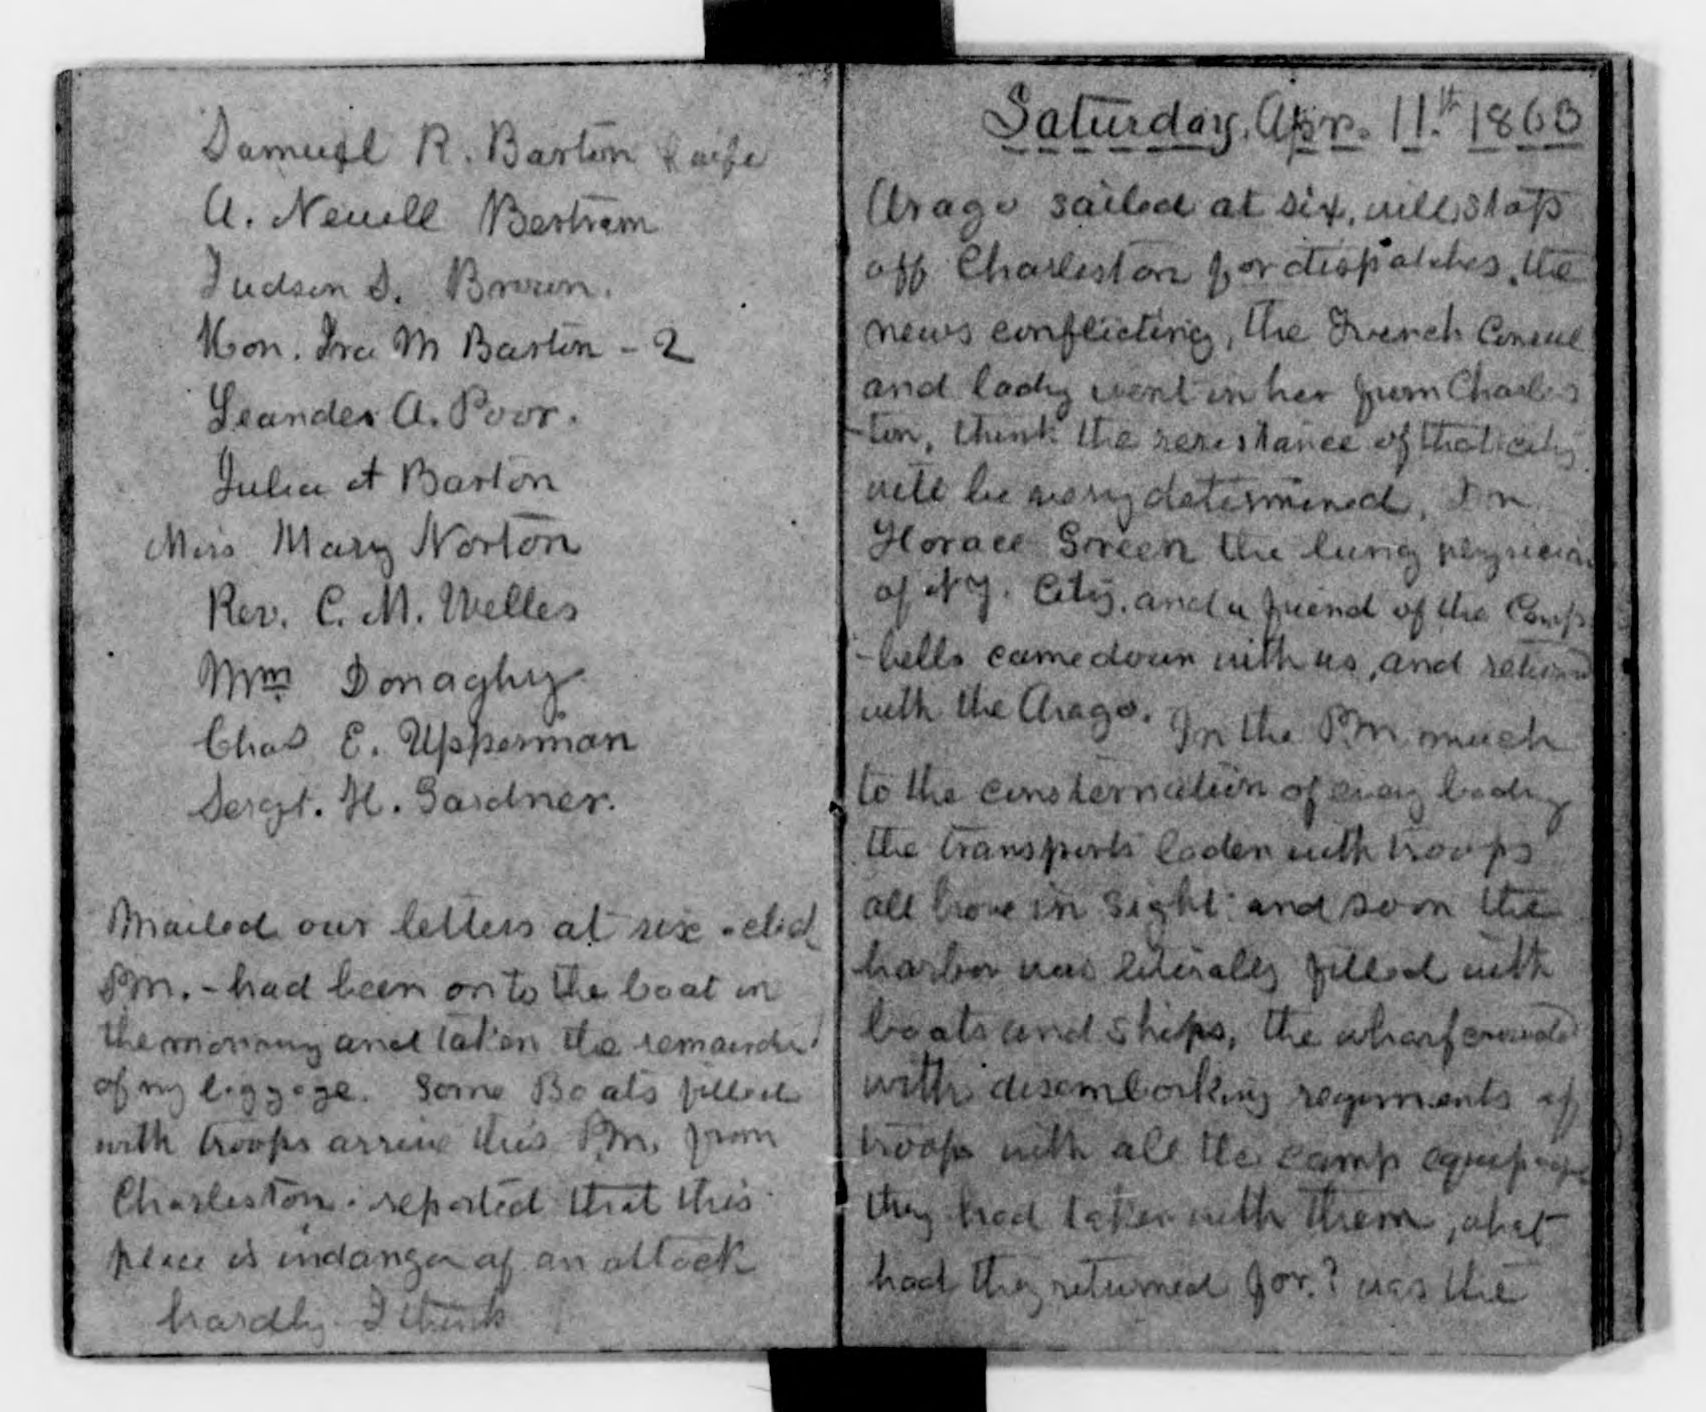 Samuel R. Barton & wife
A. Newell Bertram
Judson S. Brown.
Hon. Ira M Barton - 2
Leander A. Poor.
Julia A Barton
Miss Mary Norton
Rev. C. M. Welles
Wm Donaghy
Chas E. Upperman
Sergt. H. Gardner.
Mailed our letters at six oclock
P.M. - had been on to the boat in
the morning and taken the remainder
of my luggage. Some Boats filled
with troops arrive this P.M. from
Charleston. reported that this
place is in danger of an attack
hardly I think
Saturday, Apr. 11.th 1863
Arago sailed at six, will stop
off Charleston for dispatches, the
news conflicting, the French Consul
and lady went in her from Charles
-ton, think the resistance of that city
will be very determined, Dr.
Horace Green the lung physician
of N.Y. City, and a friend of the Camp
-bells came down with us, and returned
with the Arago. In the P.M. much
to the consternation of every body
the transports laden with troops
all hove in sight and soon the
harbor was literally filled with
boats and ships, the wharf crowded
with disembarking regiments of
troops with all the camp equipage
they had taken with them, what
had they returned for? was the